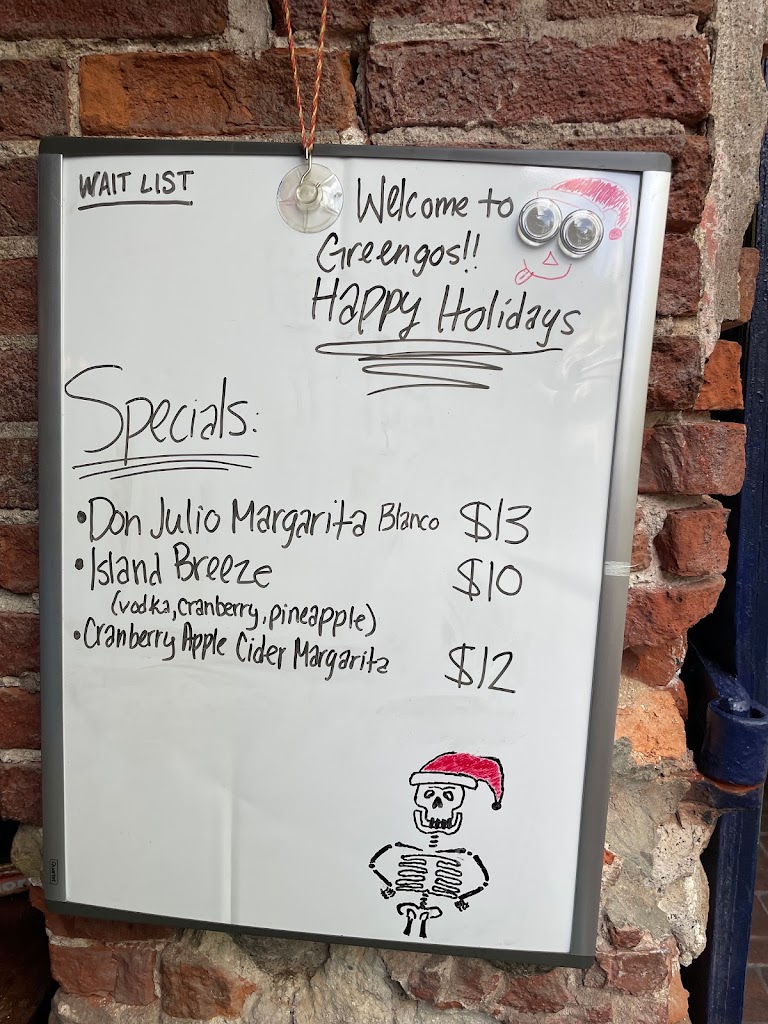 WAIT LIST
Welcome to
Greengos!!
Happy Holidays
Specials:
•Don Julio Margarita Blanco $13
•Island Breeze $10
(vodka, cranberry, pineapple)
•Cranberry Apple Cider Margarita $12